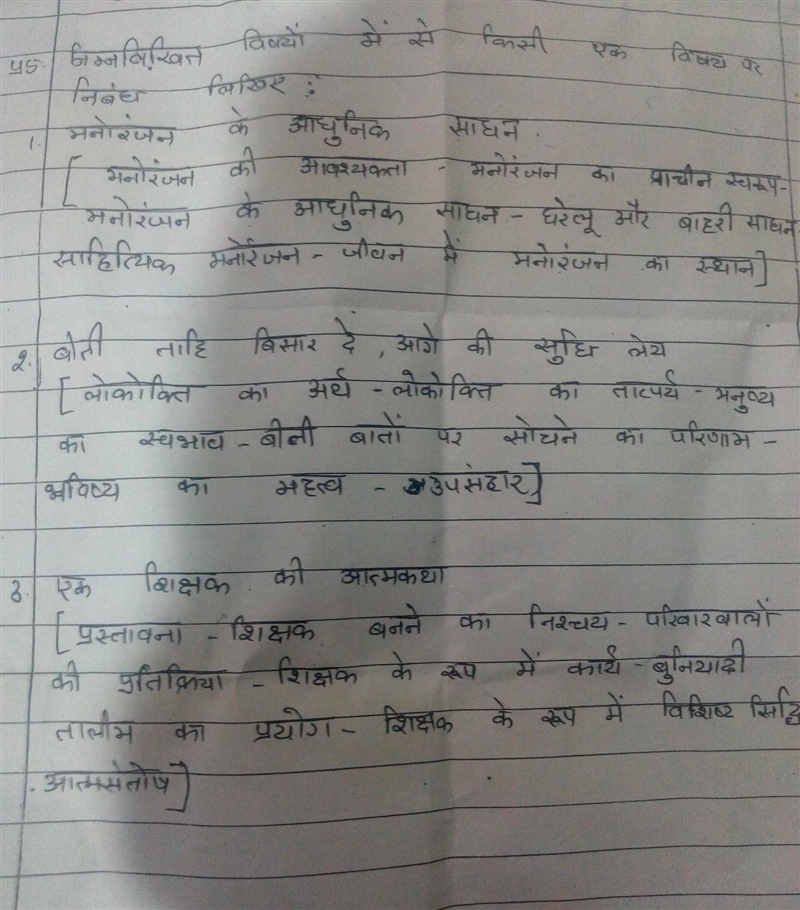 प्र5. निम्नलिखित विषयों में से किसी एक विषय पर
निबंध लिखिए :
1. मनोरंजन के आधुनिक साधन.
[ मनोरंजन की आवश्यकता - मनोरंजन का प्राचीन स्वरूप-
मनोरंजन के आधुनिक साधन - घरेलू और बाहरी साधन
साहित्यिक मनोरंजन - जीवन में मनोरंजन का स्थान]
2. बीती ताहि बिसार दे, आगे की सुधि लेय
[ लोकोक्ति का अर्थ - लोकोक्ति का तात्पर्य - मनुष्य
का स्वभाव - बीती बातों पर सोचने का परिणाम -
भविष्य का महत्व - उपसंहार]
3. एक शिक्षक की आत्मकथा
[ प्रस्तावना - शिक्षक बनने का निश्चय - परिवारवालों
की प्रतिक्रिया - शिक्षक के रूप में कार्य - बुनियादी
तालीम का प्रयोग - शिक्षक के रूप में विशिष्ट सिद्धि
. आत्मसंतोष]